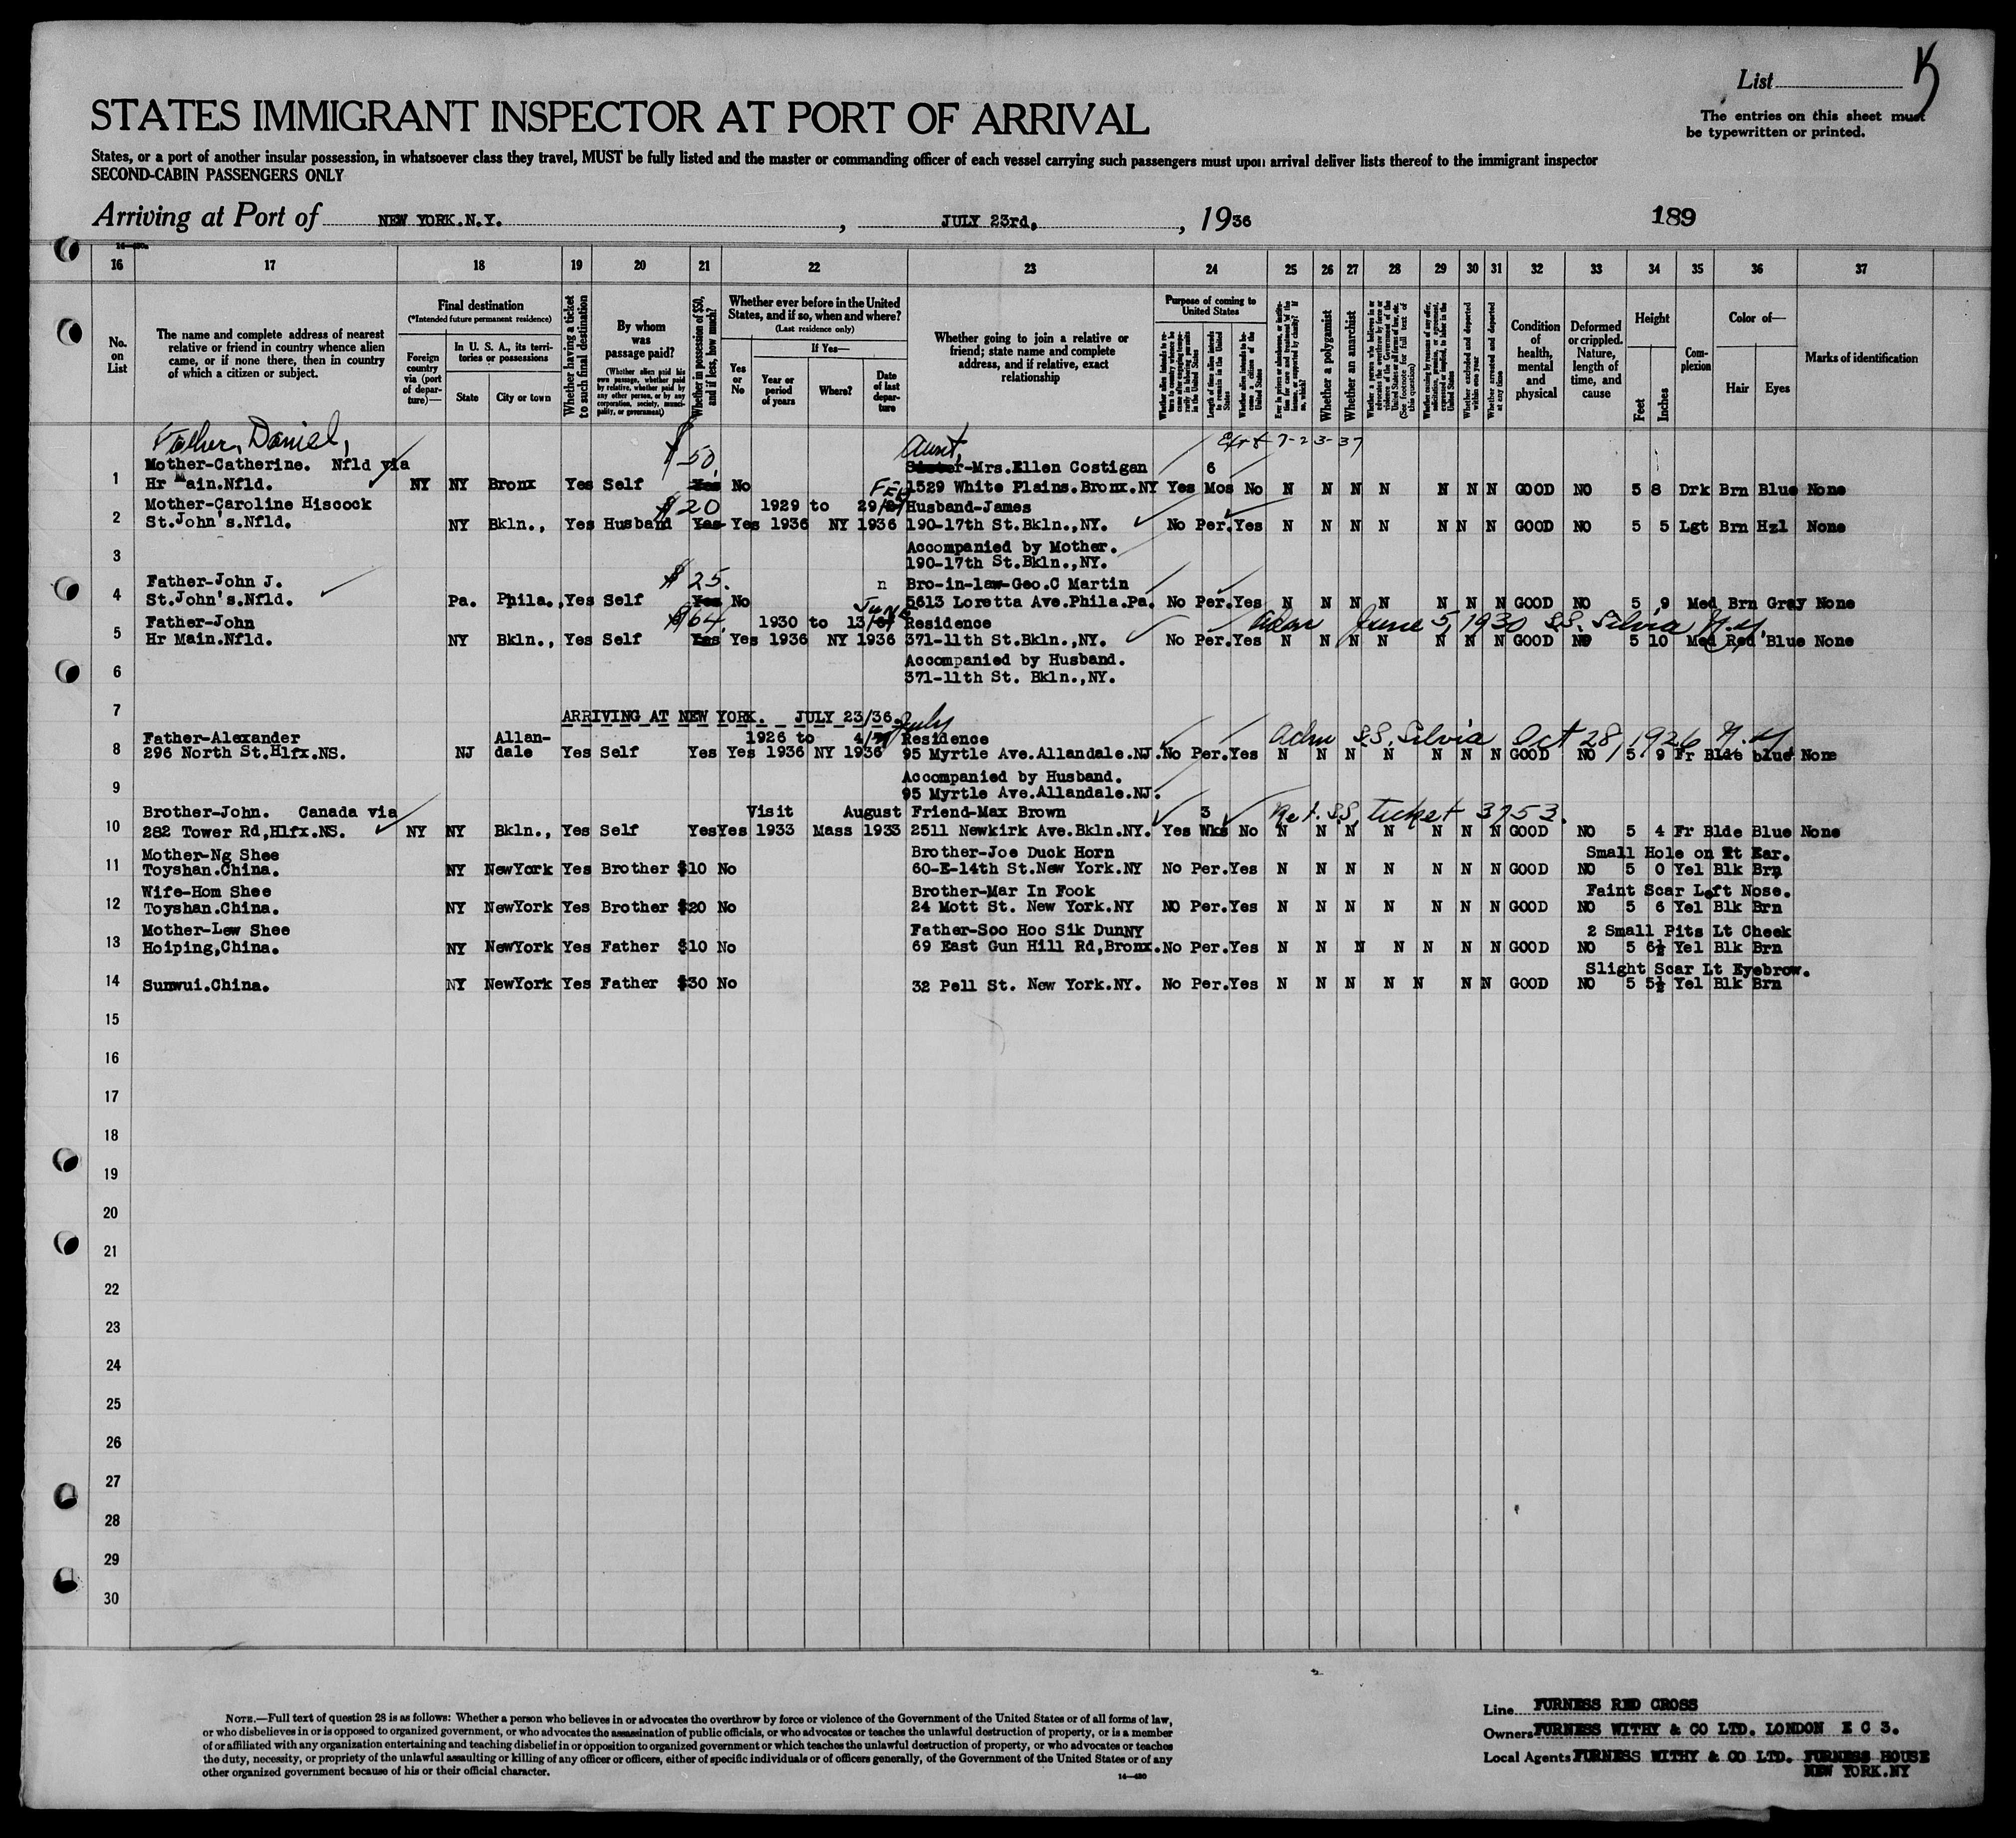 List K
The entries on this sheet must
be typewritten or printed.
STATES IMMIGRANT INSPECTOR AT PORT OF ARRIVAL
States, or a port of another insular possession, in whatsoever class they travel, MUST be fully listed and the master or commanding officer of each vessel carrying such passengers must upon arrival deliver lists thereof to the immigrant inspector
SECOND-CABIN PASSENGERS ONLY
Arriving at Port of NEW YORK.N.Y. , JULY 23rd, , 1936 189
16 17 18 19 20 21 22 23 24 25 26 27 28 29 30 31 32 33 34 35 36 37
No. on List
The name and complete address of nearest relative or friend in country whence alien came, or if none there, then in country of which a citizen or subject.
Final destination
(*Intended future permanent residence)
Foreign country via (port of departure)—
In U. S. A., its territories or possessions
State City or town
Whether having a ticket to such final destination
By whom was passage paid?
(Whether alien paid his own passage, whether paid by relative, whether paid by any other person, or by any corporation, society, municipality, or government)
Whether in possession of $50, and if less, how much?
Whether ever before in the United States, and if so, when and where?
(Last residence only)
Yes or No
If Yes—
Year or period of years
Where?
Date of last departure
Whether going to join a relative or friend; state name and complete address, and if relative, exact relationship
Purpose of coming to United States
Whether a polygamist
Whether an anarchist
Whether excluded and deported within one year
Whether arrested and deported at any time
Condition of health, mental and physical
Deformed or crippled. Nature, length of time, and cause
Height
Feet Inches
Complexion
Color of—
Hair Eyes
Marks of identification
Father, Daniel, $50. Aunt, 7-23-37
Mother-Catherine. Nfld via Sister-Mrs.Ellen Costigan 6
1 Hr Main.Nfld. NY NY Bronx Yes Self Yes No 1529 White Plains.Bronx.NY Yes Mos No N N N N N N N GOOD NO 5 8 Drk Brn Blue None
Mother-Caroline Hiscock $20 1929 to 29/ FEB Husband-James
2 St.John's.Nfld. NY Bkln., Yes Husband Yes Yes 1936 NY 1936 190-17th St.Bkln.,NY. No Per.Yes N N N N N N N GOOD NO 5 5 Lgt Brn Hzl None
3 Accompanied by Mother.
190-17th St.Bkln.,NY.
Father-John J. $25. n Bro-in-law-Geo.C Martin
4 St.John's.Nfld. Pa. Phila., Yes Self Yes No 5613 Loretta Ave.Phila.Pa. No Per.Yes N N N N N N N GOOD NO 5 9 Med Brn Gray None
Father-John $64. 1930 to 13/ JUNE Residence Adm June 5, 1930 S.S. Silvia N.Y.
5 Hr Main.Nfld. NY Bkln., Yes Self Yes Yes 1936 NY 1936 371-11th St.Bkln.,NY. No Per.Yes N N N N N N N GOOD NO 5 10 Med Red Blue None
6 Accompanied by Husband.
371-11th St. Bkln.,NY.
7 ARRIVING AT NEW YORK. JULY 23/36.
Father-Alexander Allan- 1926 to 4/ July Residence Adm S.S. Silvia Oct 28, 1926 N.Y.
8 296 North St.Hlfx.NS. NJ dale Yes Self Yes Yes 1936 NY 1936 95 Myrtle Ave.Allandale.NJ. No Per.Yes N N N N N N N GOOD NO 5 9 Fr Blde blue None
9 Accompanied by Husband.
95 Myrtle Ave.Allandale.NJ.
Brother-John. Canada via Visit August Friend-Max Brown 3 Ret. S.S. ticket 3753.
10 282 Tower Rd,Hlfx.NS. NY NY Bkln., Yes Self Yes Yes 1933 Mass 1933 2511 Newkirk Ave.Bkln.NY. Yes Wks No N N N N N N N GOOD NO 5 4 Fr Blde Blue None
Mother-Ng Shee Brother-Joe Duck Horn Small Hole on Rt Ear.
11 Toyshan.China. NY NewYork Yes Brother $10 No 60-E-14th St.New York.NY No Per.Yes N N N N N N N GOOD NO 5 0 Yel Blk Brn
Wife-Hom Shee Brother-Mar In Fook Faint Scar Left Nose.
12 Toyshan.China. NY NewYork Yes Brother $20 No 24 Mott St. New York.NY NO Per.Yes N N N N N N N GOOD NO 5 6 Yel Blk Brn
Mother-Lew Shee Father-Soo Hoo Sik DunNY 2 Small Pits Lt Cheek
13 Hoiping,China. NY NewYork Yes Father $10 No 69 East Gun Hill Rd,Bronx. No Per.Yes N N N N N N N GOOD NO 5 6½ Yel Blk Brn
Slight Scar Lt Eyebrow.
14 Sunwui.China. NY NewYork Yes Father $30 No 32 Pell St. New York.NY. No Per.Yes N N N N N N N GOOD NO 5 5½ Yel Blk Brn
15
16
17
18
19
20
21
22
23
24
25
26
27
28
29
30
NOTE.—Full text of question 28 is as follows: Whether a person who believes in or advocates the overthrow by force or violence of the Government of the United States or of all forms of law,
or who disbelieves in or is opposed to organized government, or who advocates the assassination of public officials, or who advocates or teaches the unlawful destruction of property, or is a member
of or affiliated with any organization entertaining and teaching disbelief in or opposition to organized government or which teaches the unlawful destruction of property, or who advocates or teaches
the duty, necessity, or propriety of the unlawful assaulting or killing of any officer or officers, either of specific individuals or of officers generally, of the Government of the United States or of any
other organized government because of his or their official character.
14—480
Line FURNESS RED CROSS
Owners FURNESS WITHY & CO LTD. LONDON E C 3.
Local Agents FURNESS WITHY & CO LTD. FURNESS HOUSE
NEW YORK.NY